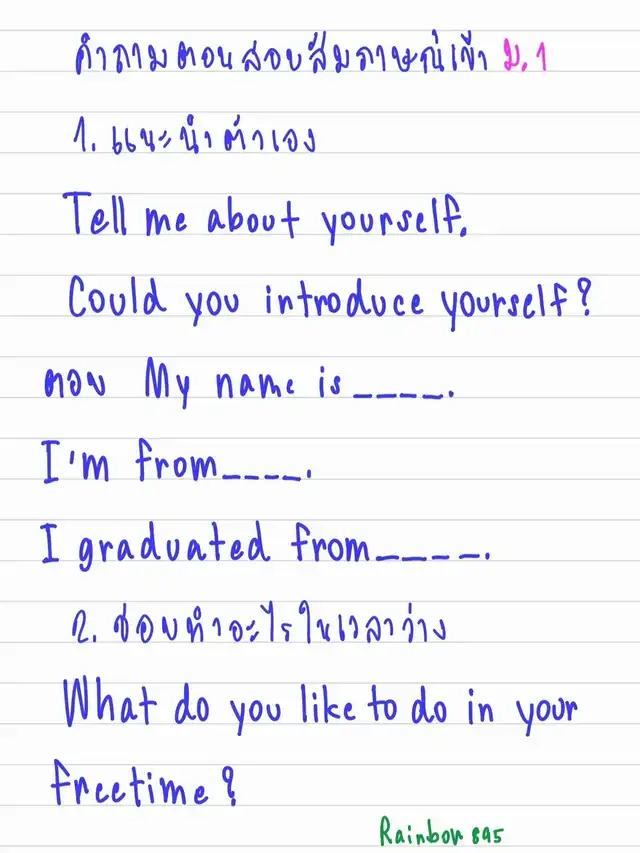 คำถามตอนสอบสัมภาษณ์เข้า ม.1
1. แนะนำตัวเอง
Tell me about yourself.
Could you introduce yourself?
ตอบ My name is ____.
I'm from____.
I graduated from____.
2. ชอบทำอะไรในเวลาว่าง
What do you like to do in your
freetime?
Rainbow 895